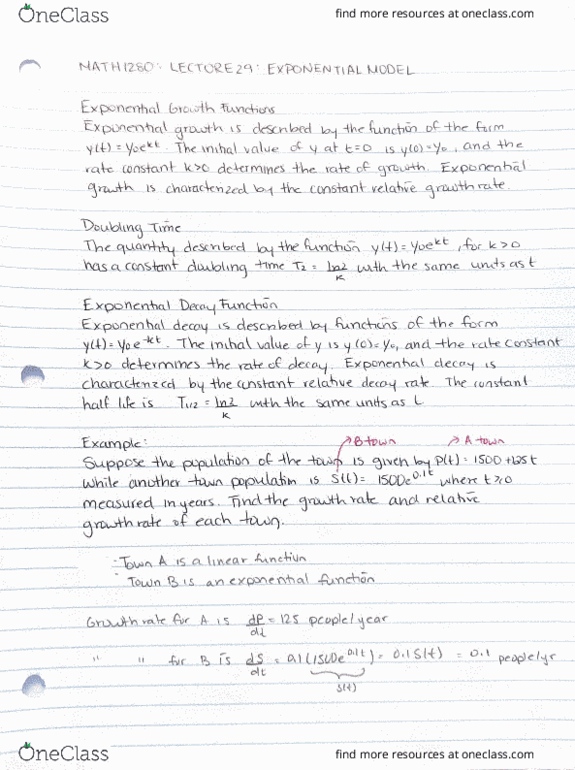 OneClass
find more resources at oneclass.com
MATH1280: LECTURE 29: EXPONENTIAL MODEL
Exponential Growth Functions
Exponential growth is described by the function of the form
y(t) = y₀e^kt. The initial value of y at t=0 is y(0)=y₀, and the
rate constant k>0 determines the rate of growth. Exponential
growth is characterized by the constant relative growth rate.
Doubling Time
The quantity described by the function y(t) = y₀e^kt, for k>0
has a constant doubling time T₂ = ln2/k with the same units as t
Exponential Decay Function
Exponential decay is described by functions of the form
y(t) = y₀e^-kt. The initial value of y is y(0)=y₀, and the rate constant
k>0 determines the rate of decay. Exponential decay is
characterized by the constant relative decay rate. The constant
half life is T1/2 = ln2/k with the same units as t
Example:
B town
A town
Suppose the population of the town is given by P(t) = 1500+125t
while another town population is S(t) = 1500e^0.1t where t≥0
measured in years. Find the growth rate and relative
growth rate of each town.
- Town A is a linear function
- Town B is an exponential function
Growth rate for A is dP/dt = 125 people/year
" " for B is dS/dt = 0.1(1500e^0.1t) = 0.1S(t) = 0.1 people/yr
S(t)
OneClass
find more resources at oneclass.com